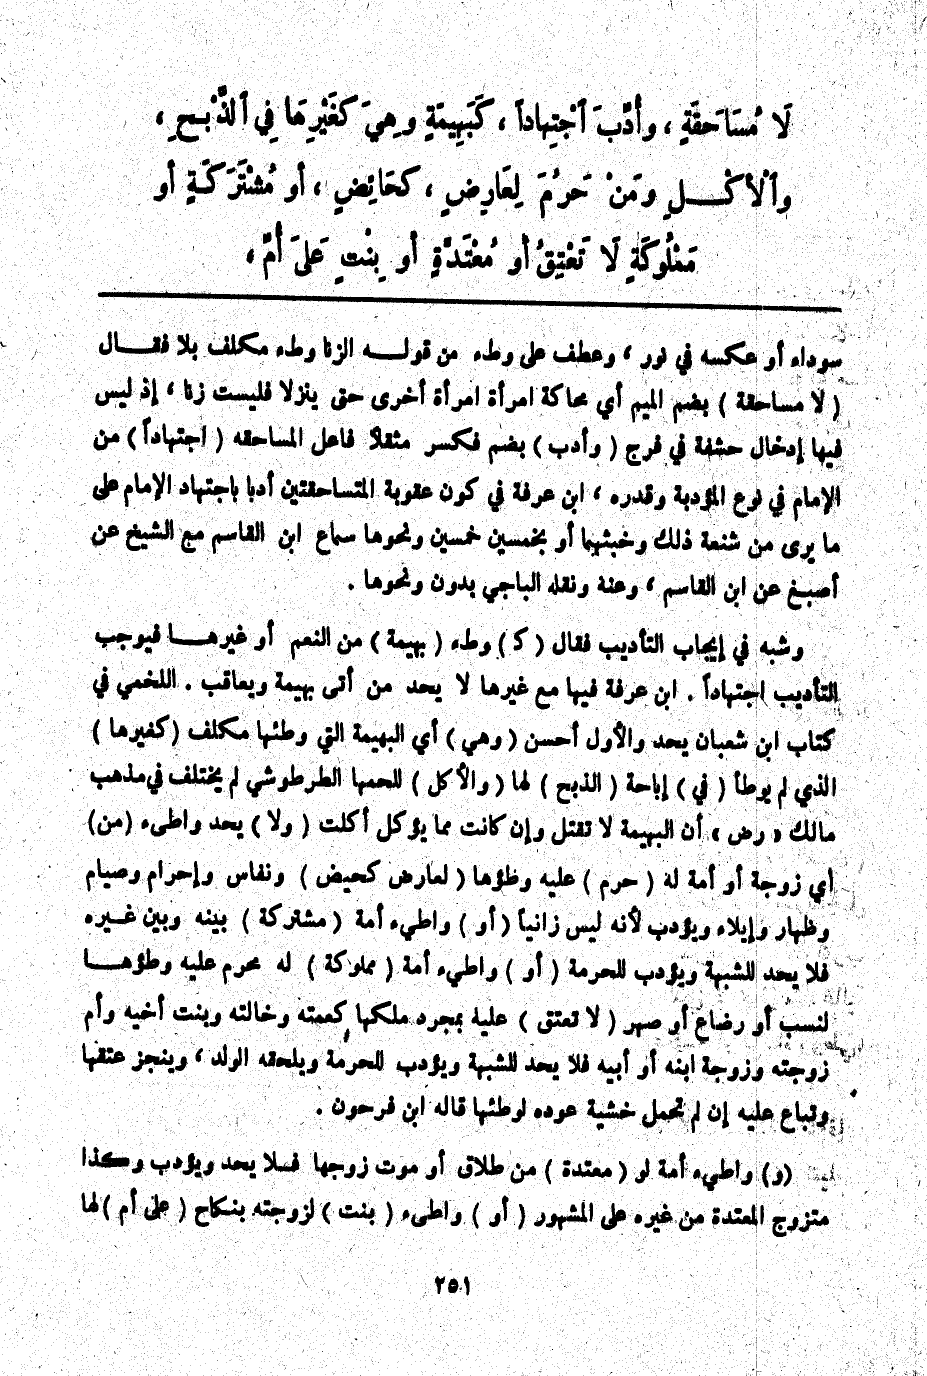 لَا مُسَاحَقَةٍ ، وأُدِّبَ ٱجْتِهاداً ، كَبَهِيمَةٍ وهِيَ كَغَيْرِهَا فِي ٱلذَّبْـحِ ،
وٱلْأكْـــلِ ومَنْ حَرُمَ لِعَارِضٍ ، كحَائِضٍ ، أو مُشْتَرَكَةٍ أو
مَمْلُوكَةٍ لَا تَعْتِقُ أو مُعْتَدَّةٍ أو بِنْتٍ عَلَى أُمٍّ ،
سوداء أو عكسه في نور ، وعطف على وطء من قولـــه الزنا وطء مكلف بلا فقـــال
( لا مساحقة ) بضم الميم أي محاكة امرأة امرأة أخرى حتى ينزلا فليست زنا ، إذ ليس
فيها إدخال حشفة في فرج ( وأدب ) بضم فكسر مثقلا فاعل المساحقه ( اجتهاداً ) من
الإمام في نوع المؤدبة وقدره ، ابن عرفة في كون عقوبة المتساحقتين أدبا باجتهاد الإمام على
ما يرى من شنعة ذلك وخبثهما أو بخمسين خمسين ونحوها سماع ابن القاسم مع الشيخ عن
أصبـغ عن ابن القاسم ، وعنه ونقله الباجي بدون ونحوها .
وشبه في إيجاب التأديب فقال ( كـ ) وطء ( بهيمة ) من النعم أو غيرهـــا فيوجب
التأديب اجتهاداً . ابن عرفة فيها مع غيرها لا يحد من أتى بهيمة ويعاقب . اللخمي في
كتاب ابن شعبان يحد والأول أحسن ( وهي ) أي البهيمة التي وطئها مكلف ( كغيرها )
الذي لم يوطأ ( في ) إباحة ( الذبح ) لها ( والأكل ) للحمها الطرطوشي لم يختلف في مذهب
مالك « رض » أن البهيمة لا تقتل وإن كانت مما يؤكل أكلت ( ولا ) يحد واطىء (من)
أي زوجة أو أمة له ( حرم ) عليه وطؤها ( لعارض كحيض ) ونفاس وإحرام وصيام
وظهار وإيلاء ويؤدب لأنه ليس زانياً ( أو ) واطيء أمة ( مشتركة ) بينه وبين غـــيره
فلا يحد للشبهة ويؤدب للحرمة ( أو ) واطيء أمة ( مملوكة ) له محرم عليه وطؤهـــا
لنسب أو رضاع أو صهر ( لا تعتق ) عليه بمجرد ملكها كعمته وخالته وبنت أخيه وأم
زوجته وزوجة ابنه أو أبيه فلا يحد للشبهة ويؤدب للحرمة ويلحقه الولد ، وينجز عتقها
وتباع عليه إن لم تحمل خشية عوده لوطئها قاله ابن فرحون .
(و) واطيء أمة لو ( معتدة ) من طلاق أو موت زوجها فـلا يحد ويؤدب وكذا
متزوج المعتدة من غيره على المشهور ( أو ) واطىء ( بنت ) لزوجته بنكاح ( على أم ) لها
٢٥١